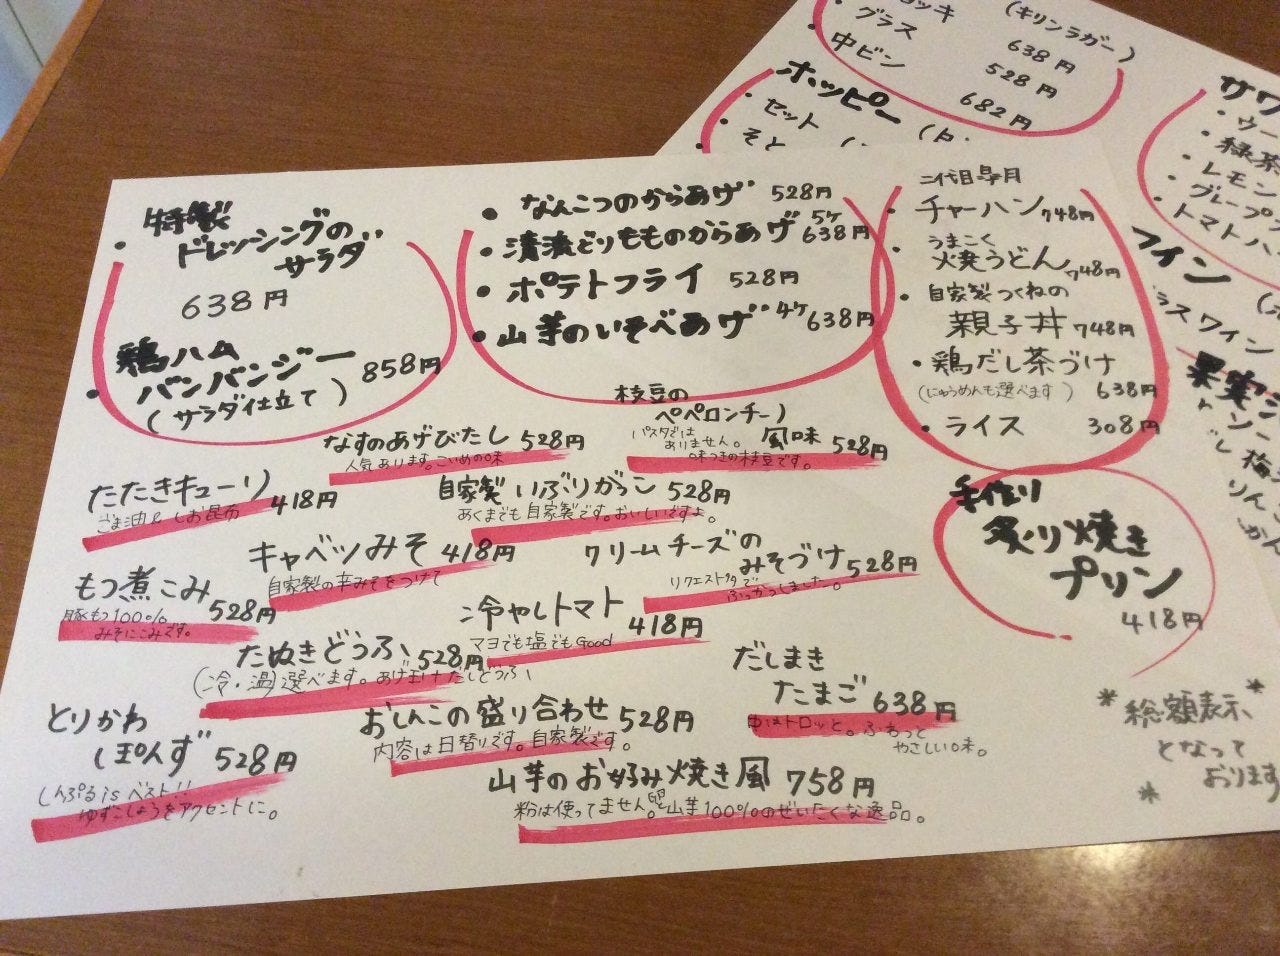 特製
・ドレッシングの
サラダ
638円
鶏ハム
・バンバンジー 858円
(サラダ仕立て)
・なんこつのからあげ 528円
・清流どりもものからあげ 5ヶ 638円
・ポテトフライ 528円
・山芋のいそべあげ 4ヶ 638円
二代目皐月
・チャーハン 748円
・うまこく
焼うどん 748円
・自家製つくねの
親子丼 748円
・鶏だし茶づけ
(にゅうめんも選べます) 638円
・ライス 308円
手作り
炙り焼き
プリン
418円
枝豆の
ペペロンチーノ
風味 528円
パスタではありません。
味つきの枝豆です。
なすのあげびたし 528円
人気あります。こいめの味
たたきキューリ 418円
ごま油&しお昆布
自家製いぶりがっこ 528円
あくまでも自家製です。おいしいですよ。
キャベツみそ 418円
自家製の辛みそをつけて
クリームチーズの
みそづけ 528円
リクエストタタで
ふっかつしました。
もつ煮こみ 528円
豚もつ100%
みそにこみです。
冷やしトマト 418円
マヨでも塩でもGood
たぬきどうふ 528円
(冷・温)選べます。あげ玉けだしどうふ
だしまき
たまご 638円
中はトロッと。ふわって
やさしい味。
とりかわ
ぽんず 528円
しんぷるisベスト!!
ゆずこしょうをアクセントに。
おしんこの盛り合わせ 528円
内容は日替りです。自家製です。
山芋のお好み焼き風 758円
粉は使ってません。卵と山芋100%のぜいたくな逸品。
*総額表示*
となって
*おります
(キリンラガー)
638円
グラス 528円
中ビン 682円
ホッピー
・セット
・そと
サワ
・ウー
・緑茶
・レモン
・グレープフ
・トマトハ
ワイン
グラスワイン
果実
梅
りん